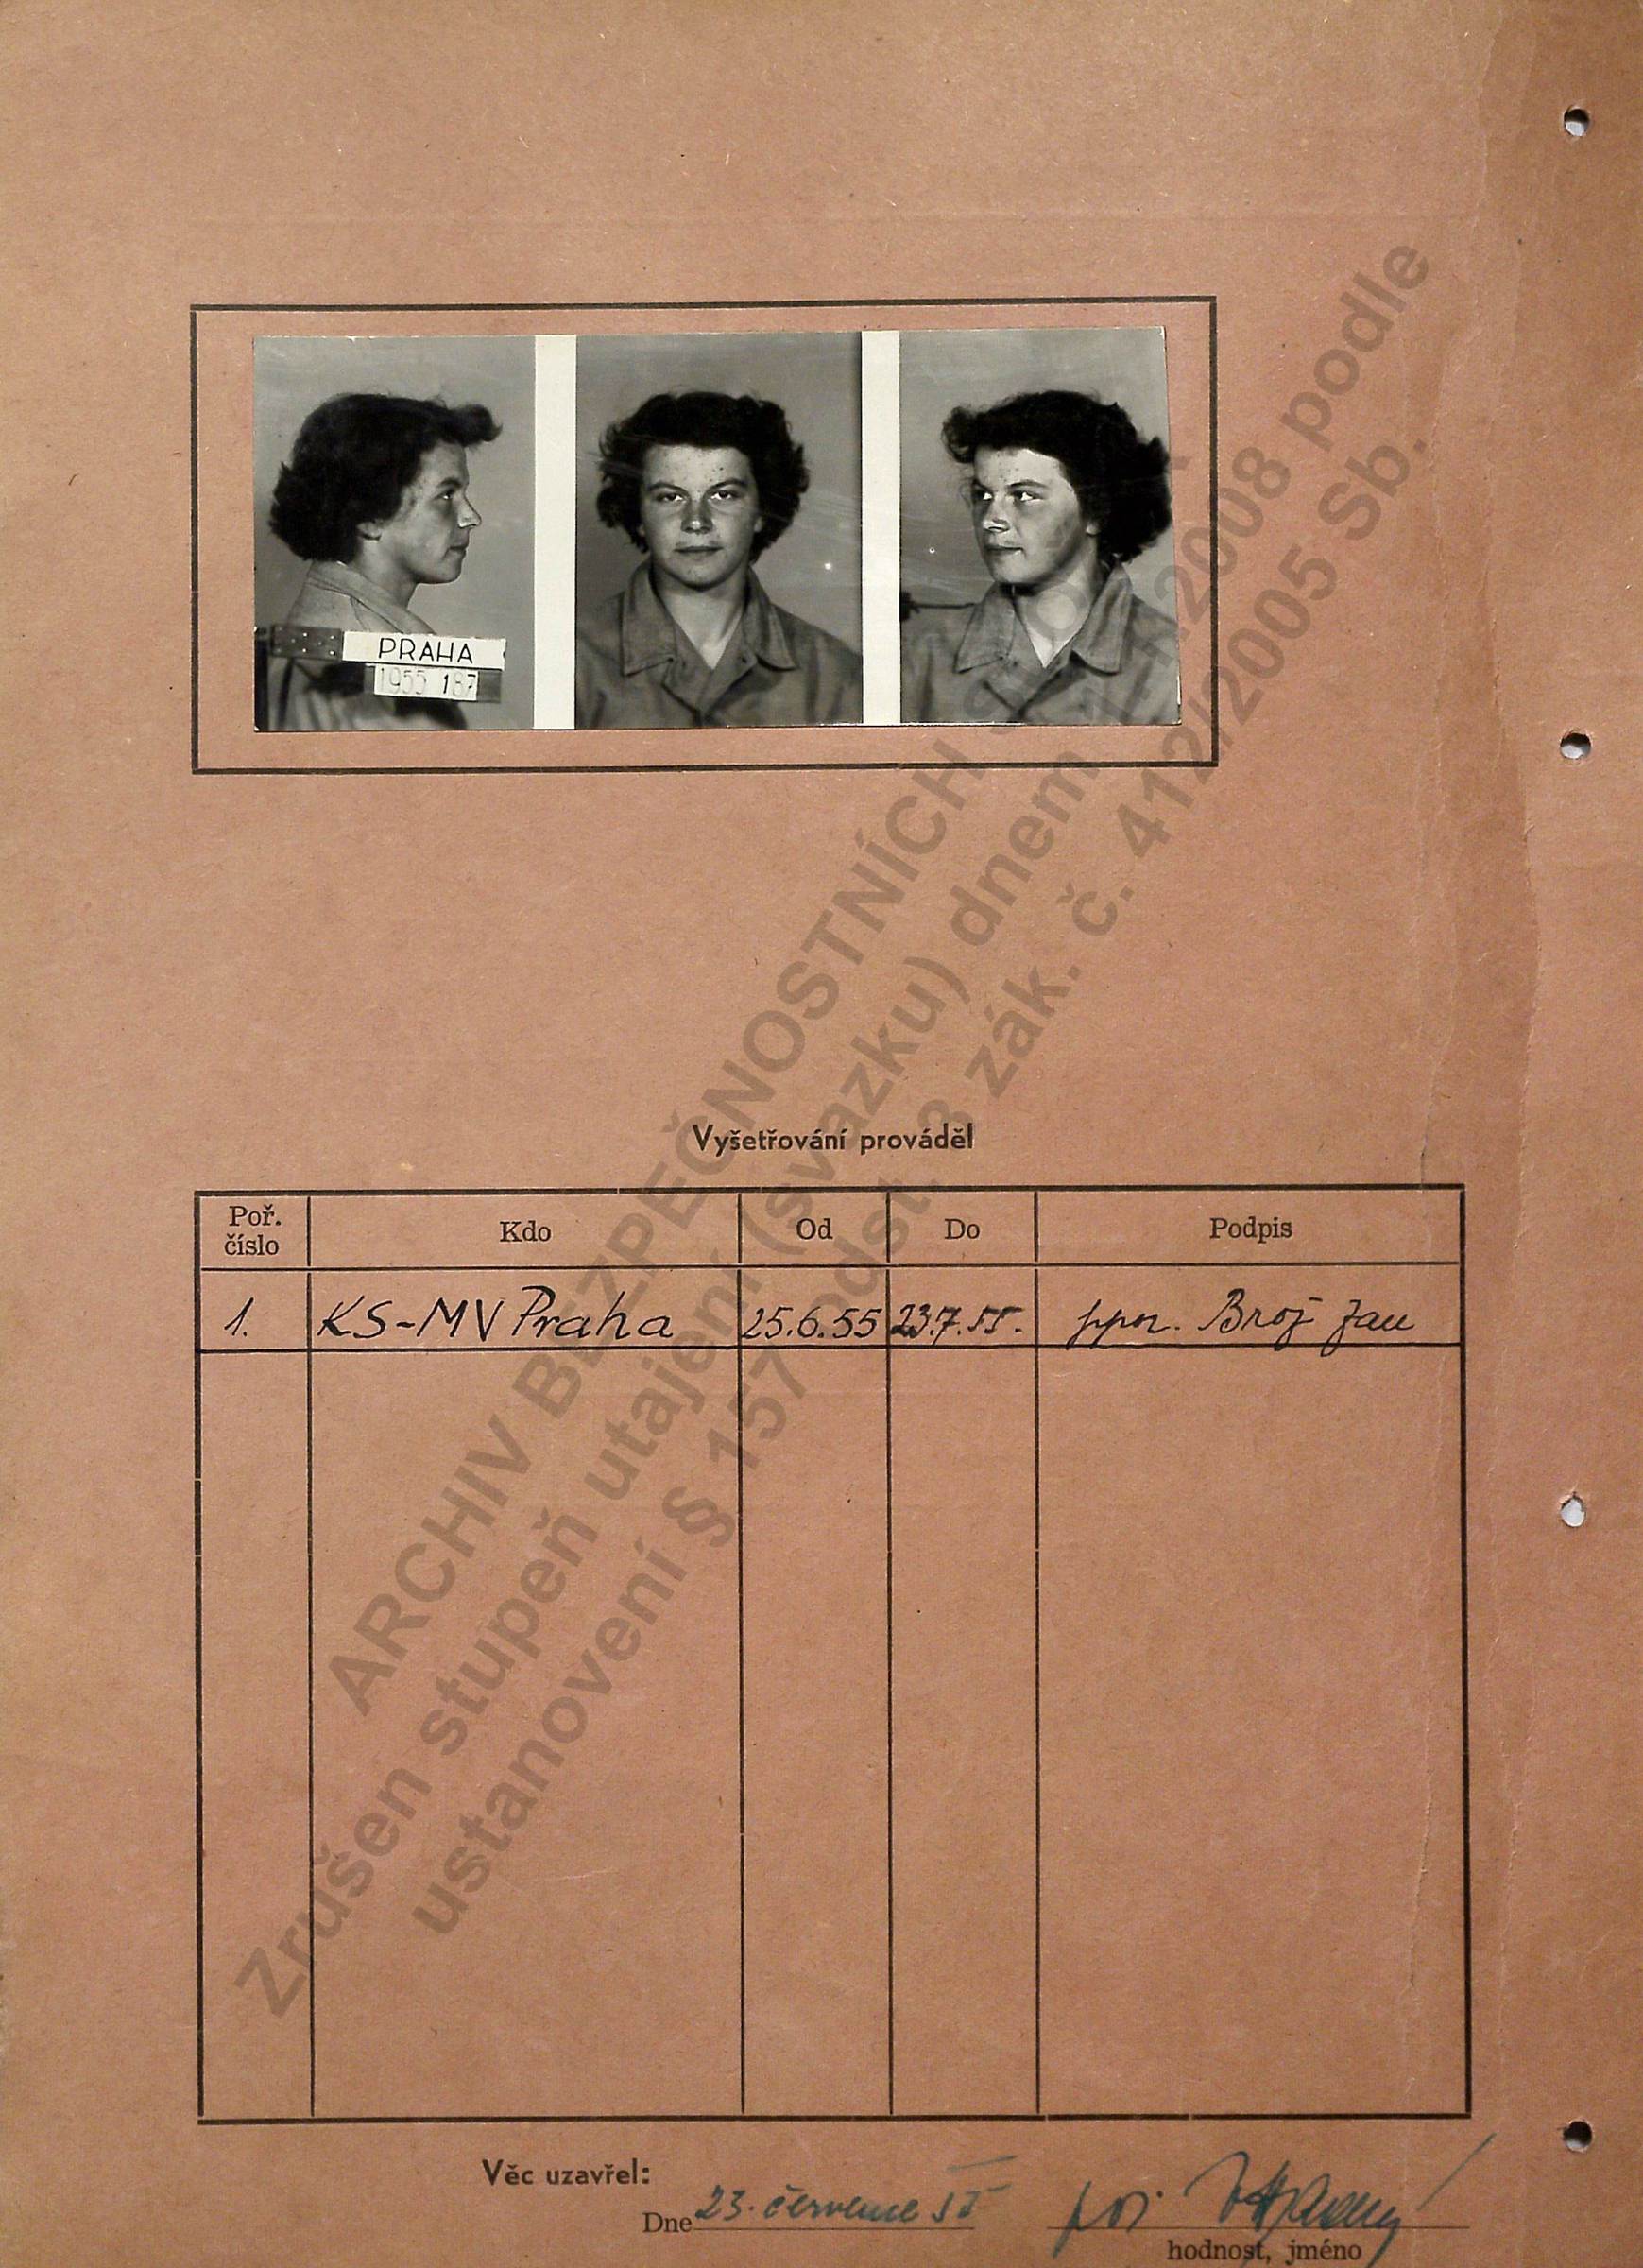 PRAHA
1955 187
Vyšetřování prováděl
Poř. číslo Kdo Od Do Podpis
1. KS-MV Praha 25.6.55 23.7.55. ppor. Brož Jan
Věc uzavřel:
Dne 23. července 55
hodnost, jméno
ARCHIV BEZPEČNOSTNÍCH
Zrušen stupeň utajení (svazku) dnem 2008 podle
ustanovení § 157 odst. 3 zák. č. 412/2005 Sb.